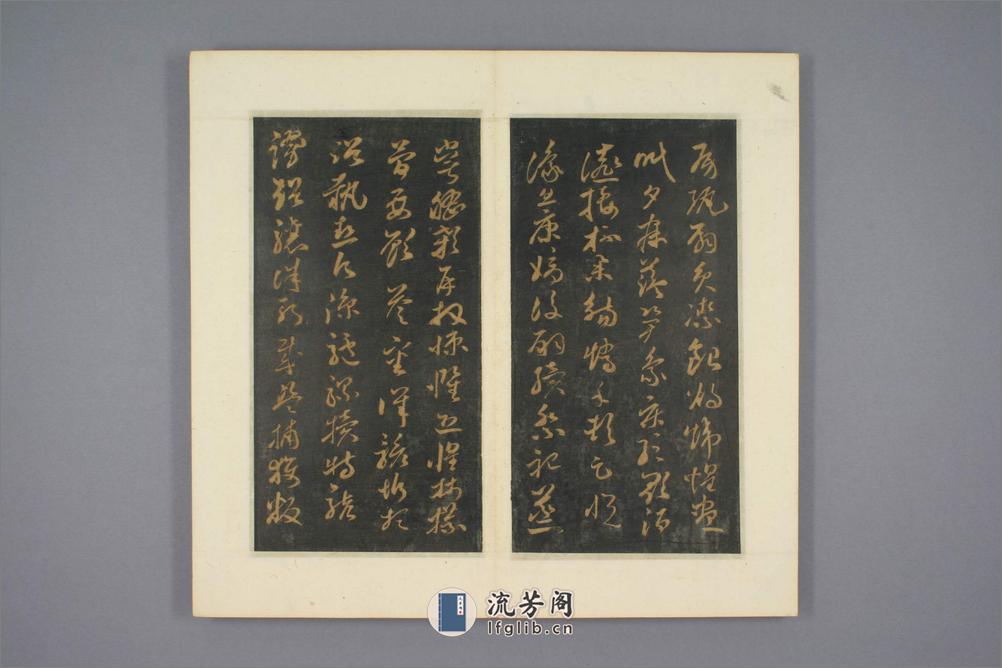 房紈扇員潔銀燭煒煌晝
眠夕寐藍笋象床弦歌酒
讌接杯舉觴矯手頓足悅
豫且康嫡後嗣續祭祀蒸
嘗稽顙再拜悚懼恐惶牋牒
簡要顧答審詳骸垢想
浴執熱願涼驢騾犢特駭
躍超驤誅斬賊盜捕獲叛
流芳阁
lfglib.cn